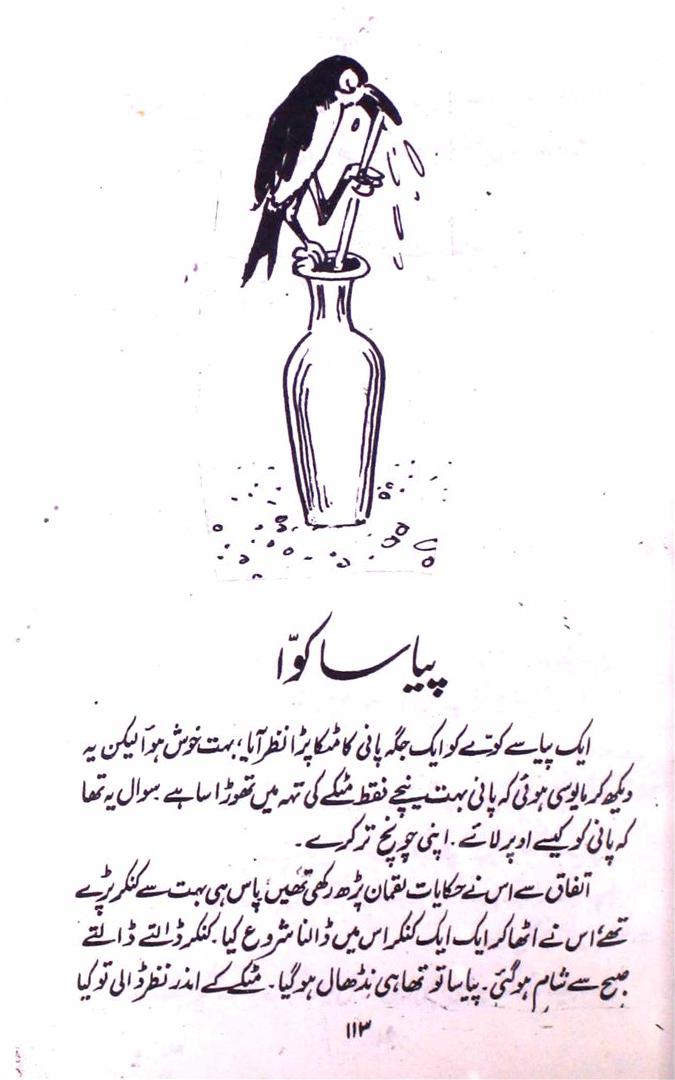 پیاسا کوّا
ایک پیاسے کوّے کو ایک جگہ پانی کا مٹکا پڑا نظر آیا، بہت خوش ہوا لیکن یہ
دیکھ کر مایوسی ہوئی کہ پانی بہت نیچے فقط مٹکے کی تہہ میں تھوڑا سا ہے۔ سوال یہ تھا
کہ پانی کو کیسے اوپر لائے۔ اپنی چونچ تر کرے۔
اتفاق سے اس نے حکایات لقمان پڑھ رکھی تھیں، پاس ہی بہت سے کنکر پڑے
تھے، اس نے اٹھا کر ایک ایک کنکر اس میں ڈالنا شروع کیا۔ کنکر ڈالتے ڈالتے
صبح سے شام ہو گئی۔ پیاسا تو تھا ہی نڈھال ہو گیا۔ مٹکے کے اندر نظر ڈالی تو کیا
۱۱۳